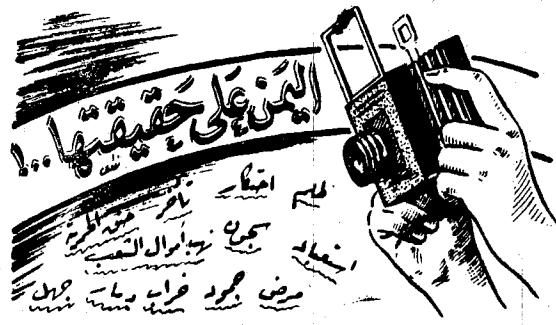 اليمن على حقيقتها...!
ظلم احتكار تأخر خنق الحرية
استعباد سجون نهب أموال الشعب
مرض جمود خراب دمار جهل